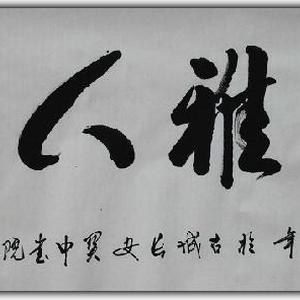 雅人
年於古城长安關中書院